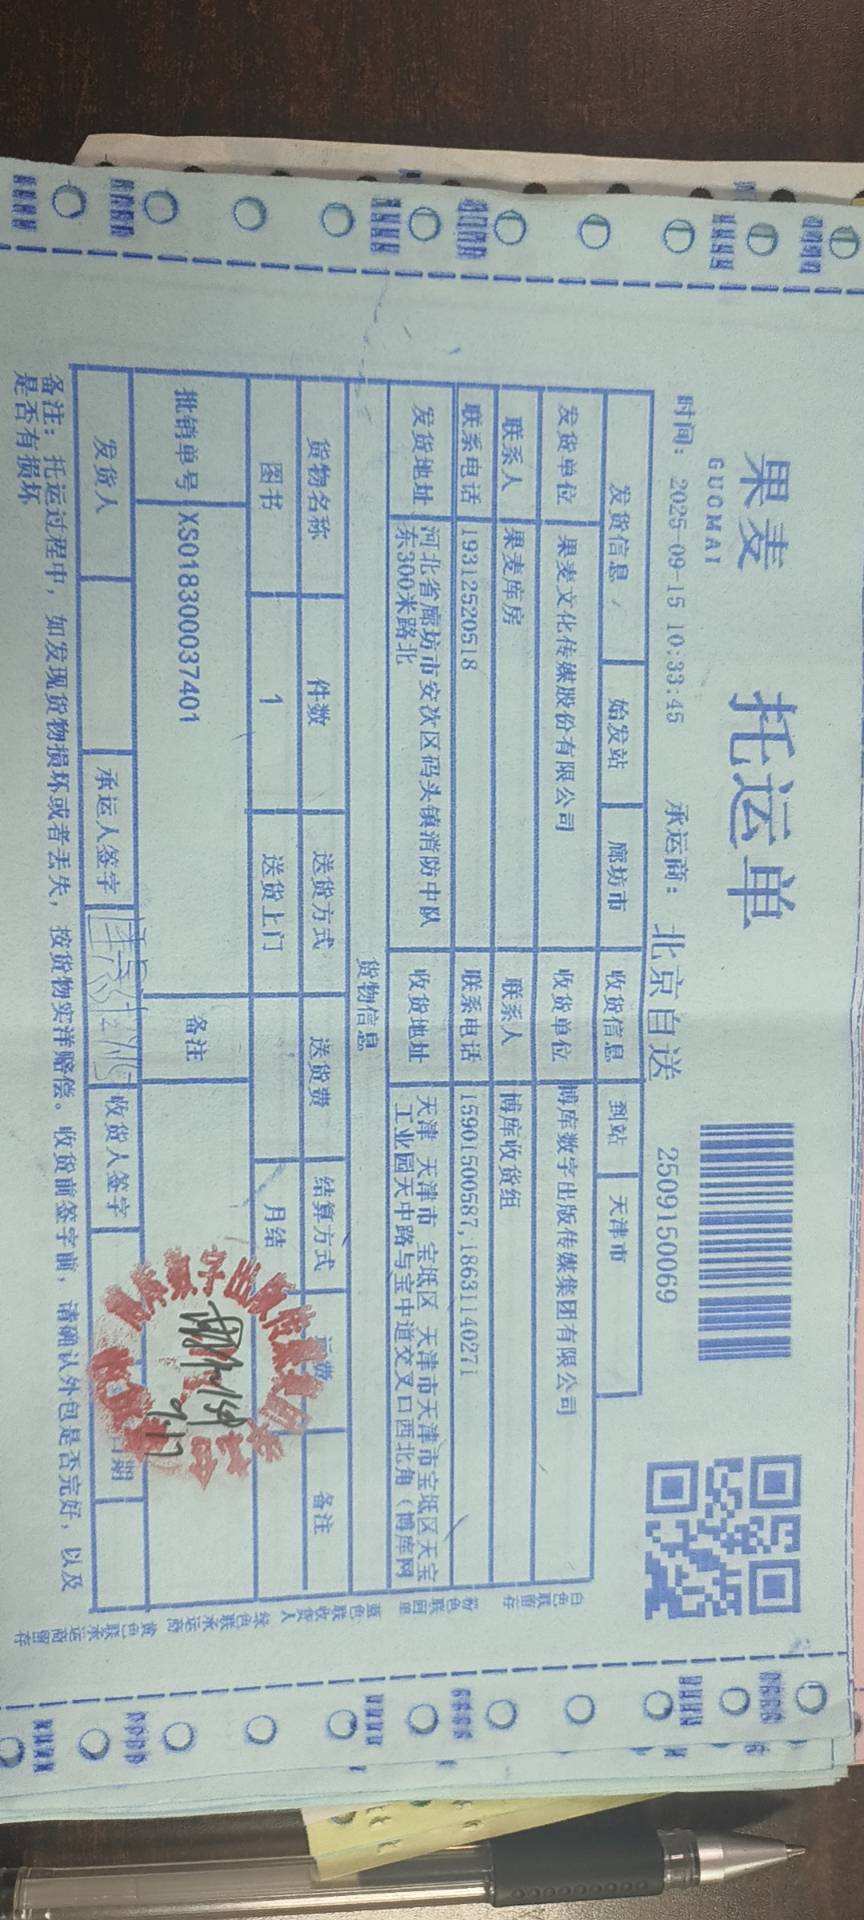 果麦
GUOMAI
托运单
时间：2025-09-15 10:33:45 承运商：北京自送 2509150069
发货信息 始发站 廊坊市 收货信息 到站 天津市
发货单位 果麦文化传媒股份有限公司 收货单位 博库数字出版传媒集团有限公司
联系人 果麦库房 联系人 博库收货组
联系电话 19312520518 联系电话 15901500587,18631140271
发货地址 河北省廊坊市安次区码头镇消防中队 收货地址 天津 天津市 宝坻区 天津市天津市宝坻区天宝
东300米路北 工业园天中路与宝中道交叉口西北角（博库网
货物信息
货物名称 件数 送货方式 送货费 结算方式 运费 备注
图书 1 送货上门 月结
批销单号 XS018300037401 备注
发货人 承运人签字 收货人签字 日期
9.17
备注：托运过程中，如发现货物损坏或者丢失，按货物实洋赔偿。收货前签字前，请确认外包是否完好，以及
是否有损坏
白色联留存 粉色联回单 蓝色联收货人 绿色联承运商 黄色联承运商留存